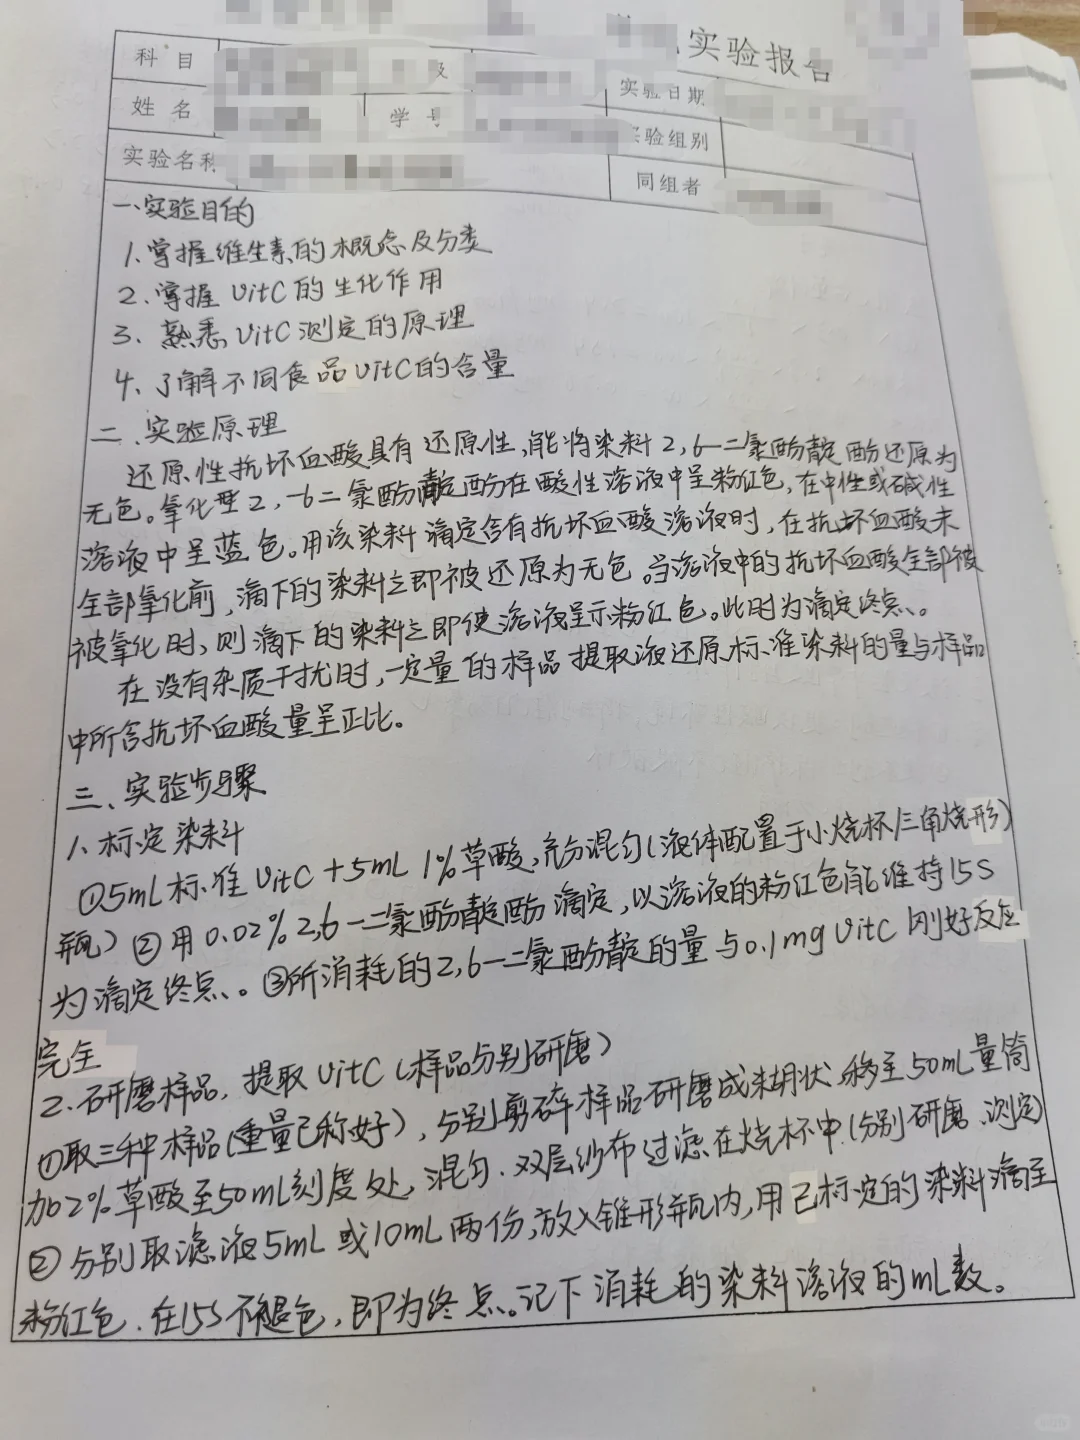 实验报告
科目 级 实验日期
姓名 学号 实验组别
实验名称 同组者
一、实验目的
1.掌握维生素的概念及分类
2.掌握VitC的生化作用
3.熟悉VitC测定的原理
4.了解不同食品VitC的含量
二、实验原理
还原性抗坏血酸具有还原性,能将染料2,6-二氯酚靛酚还原为
无色。氧化型2,-6二氯酚靛酚在酸性溶液中呈粉红色,在中性或碱性
溶液中呈蓝色。用该染料滴定含有抗坏血酸溶液时,在抗坏血酸未
全部氧化前,滴下的染料立即被还原为无色。当溶液中的抗坏血酸全部被
被氧化时,则滴下的染料立即使溶液呈示粉红色。此时为滴定终点。
在没有杂质干扰时,一定量的样品提取液还原标准染料的量与样品
中所含抗坏血酸量呈正比。
三、实验步骤
1.标定染料
①5mL标准VitC+5mL 1%草酸,充分混匀(液体配置于小烧杯/三角烧形
瓶)②用0.02%2,6-二氯酚靛酚滴定,以溶液的粉红色能维持15S
为滴定终点。③所消耗的2,6-二氯酚靛的量与0.1mgVitC刚好反应
完全
2.研磨样品,提取VitC(样品分别研磨)
①取三种样品(重量已称好),分别剪碎样品研磨成糊状,移至50mL量筒
加2%草酸至50mL刻度处,混匀.双层纱布过滤在烧杯中.(分别研磨、测定)
②分别取滤液5mL或10mL两份,放入锥形瓶内,用已标定的染料滴至
粉红色.在15S不褪色,即为终点。记下消耗的染料溶液的mL数。